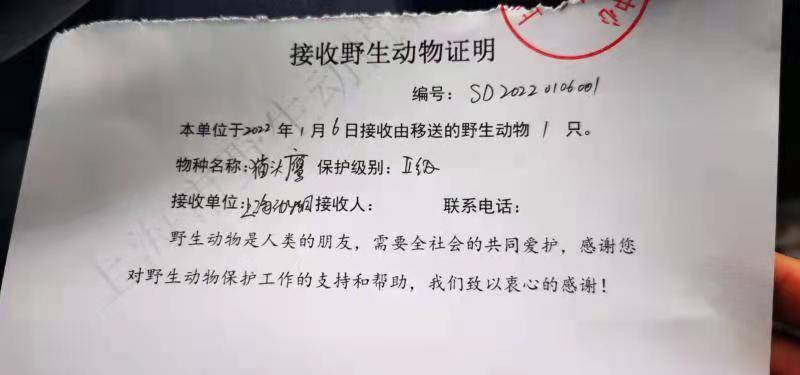 中心
接收野生动物证明
编号: SD20220106001
本单位于2022年1月6日接收由移送的野生动物1只。
物种名称:猫头鹰 保护级别:II级
接收单位:上海动物园接收人: 联系电话:
野生动物是人类的朋友,需要全社会的共同爱护,感谢您
对野生动物保护工作的支持和帮助,我们致以衷心的感谢!